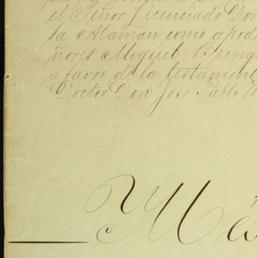 el Señor Licenciado Don
ta Alaman como apod
ñores Miguel
á favor de la testament
Doctor Don José Pablo
Mé